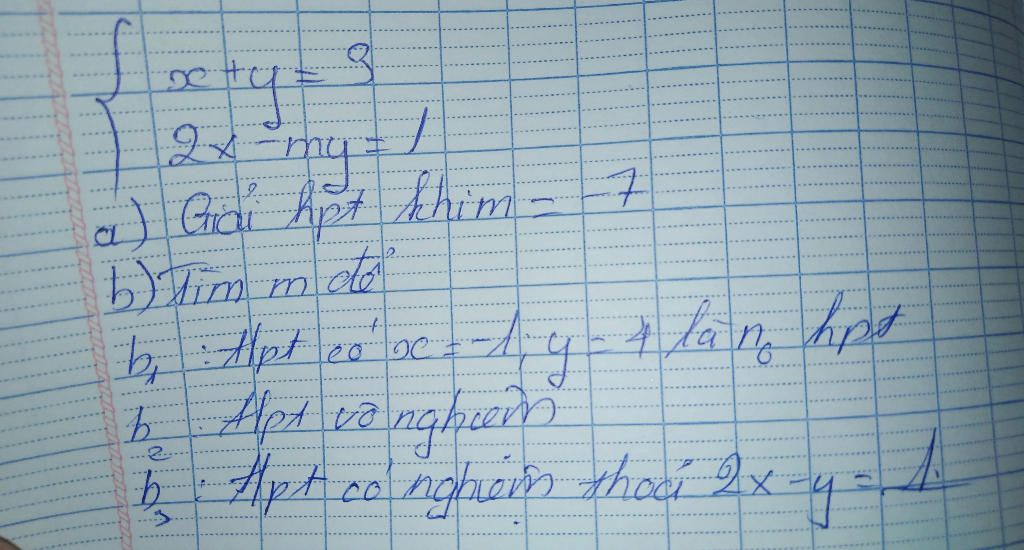 x + y = 3
2x - my = 1
a) Giải hpt khi m = -7
b) Tìm m để
b1 : Hpt có x = -1; y = 4 là n0 hpt
b2 : Hpt vô nghiệm
b3 : Hpt có nghiệm thoả 2x - y = 1.